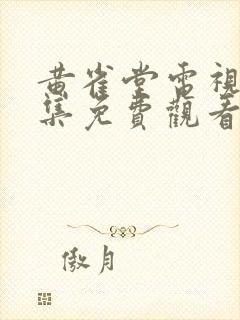 黄雀堂電視
集免費觀看
傲月